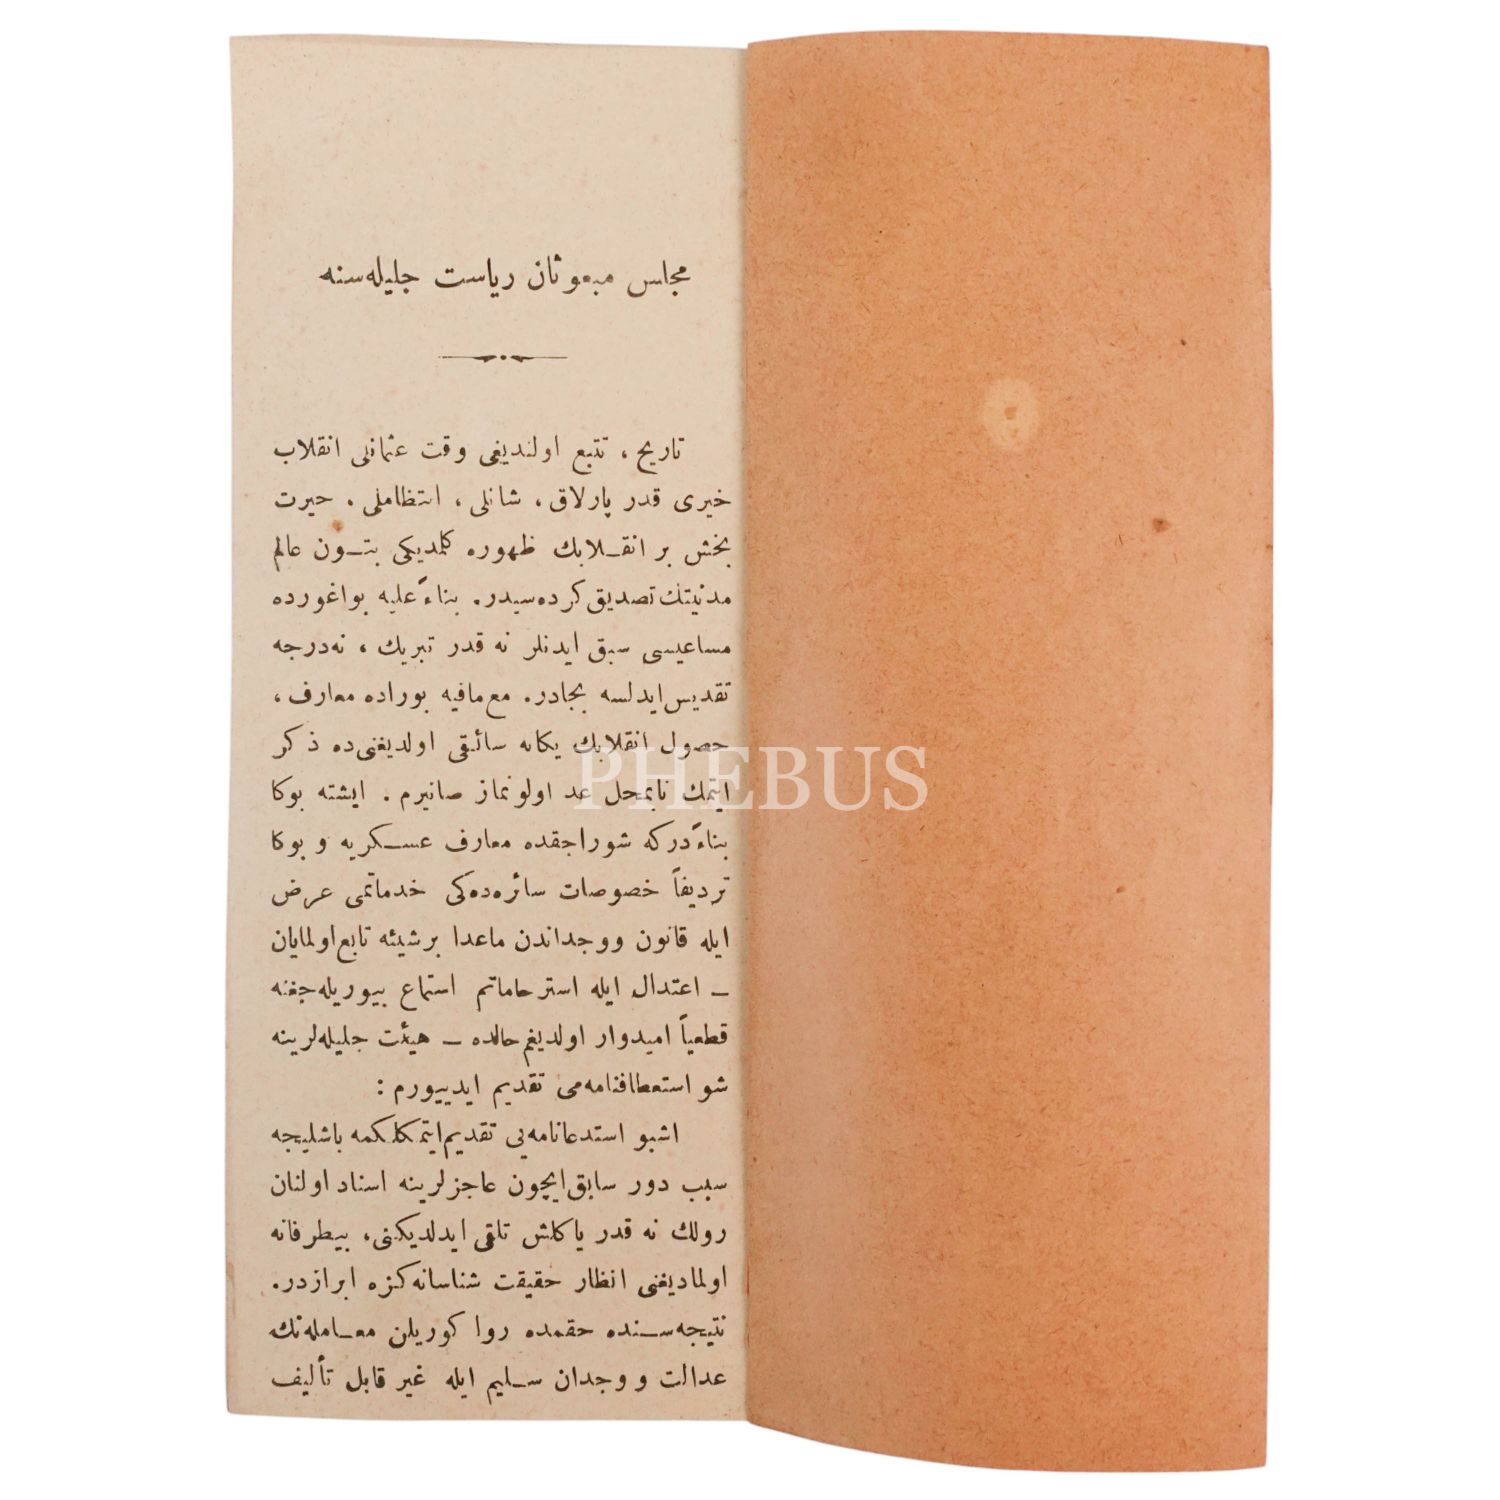 مجلس مبعوثان ریاست جلیله‌سنه
تاریخ ، تتبع اولندیغی وقت عثمانلی انقلاب
خیری قدر پارلاق ، شانلی ، انتظاملی ، حیرت
بخش بر انقـلابك ظهوره كلمدیكی بتـون عالم
مدنیتك تصدیق كرده‌سیدر. بناءً علیه بو اغورده
مساعیسی سبق ایدنلر نه قدر تبریك ، نه‌درجه
تقدیس ایدلسه بجادر. مع‌مافیه بوراده معارف ،
حصول انقلابك یكانه سائقی اولدیغنی‌ده ذكر
ایتمك نابمحل عد اولونماز صانیرم . ایشته بوكا
بناءً دركه شوراجقده معارف عسـكریه و بوكا
تردیفاً خصوصات سائره‌ده‌كی خدماتمی عرض
ایله قانون ووجداندن ماعدا برشیئه تابع اولمایان
ـ اعتدال ایله استرحاماتم استماع بیوریله‌جغنه
قطعیاً امیدوار اولدیغم حالده ـ هیئت جلیله‌لرینه
شو استعطافنامه‌می تقدیم ایدییورم :
اشبو استدعانامه‌یی تقدیم ایتمكلكمه باشلیجه
سبب دور سابق ایچون عاجزلرینه اسناد اولنان
رولك نه قدر یاكلش تلقی ایدلدیكنی، بیطرفانه
اولمادیغنی انظار حقیقت شناسانه‌كزه ابرازدر.
نتیجه‌سـنده حقمده روا كوریلن معـامله‌نك
عدالت و وجدان سـلیم ایله غیر قابل تألیف
PHEBUS